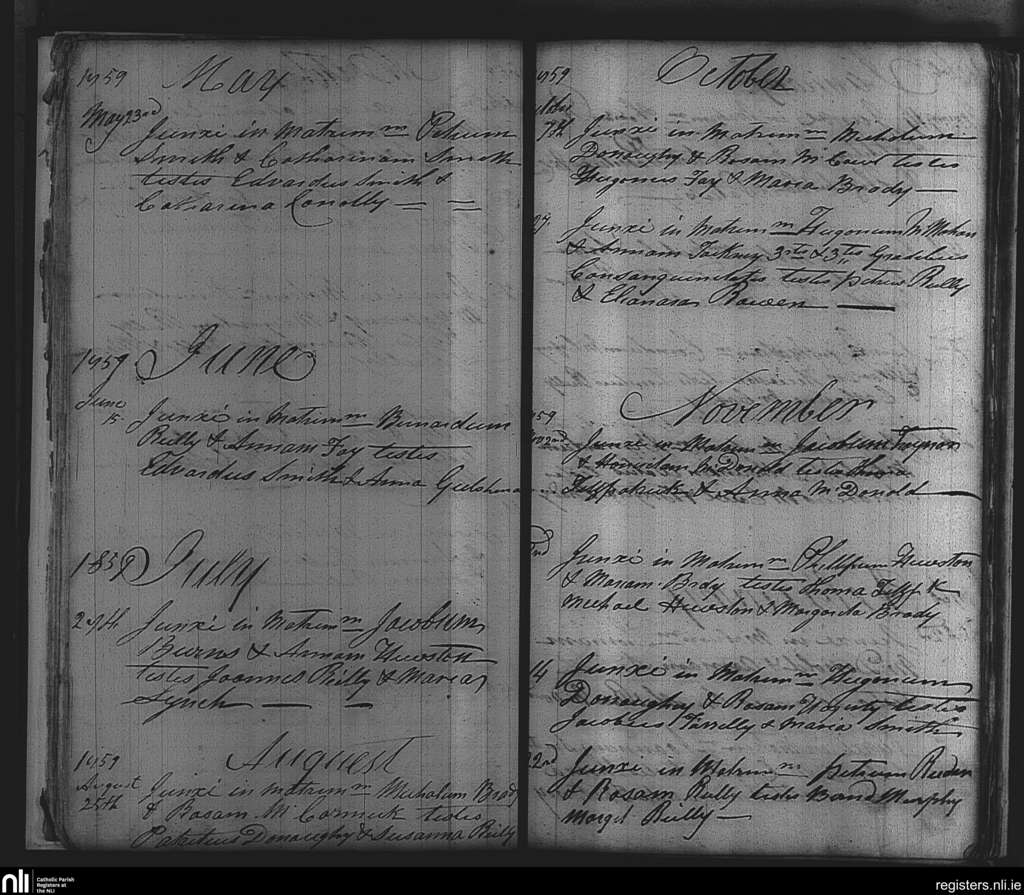 1859 May
May 23rd
Junxi in Matrim m Petrum
Smith & Catharinam Smith
testis Edvardus Smith &
Catharina Conolly
1859 June
June
15 Junxi in Matrim m Bernardum
Reilly & Annam Fay testis
Edvardus Smith & Anna
1859 July
29th Junxi in Matrim m Jacobum
Burns & Annam Hewston
testes Joannes Reilly & Maria
Lynch
1859 August
August
25th Junxi in Matrim m Michalum Brady
& Rosam Mc Cormick testis
Donaughy & Susanna Reilly
1859 October
7th Junxi in Matrim m Michalum
Donaughy & Rosam Mc testes
Hugonis Fay & Maria Brady
27 Junxi in Matrim m Hugonum Mc Mahon
& Annam 3rtio & 3tio Gradibus
Consanguinitatis testes Petrus Reilly
& Elianara Bowen
November
1859
Nov 2nd Junxi in Matrim m Jacobum Traynor
& Mc Donald testes Thoma
Fitzpatrick & Anna Mc Donald
2nd
Junxi in Matrim m Phillipum Hewston
& Mariam Brady testes Thoma
Michael Hewston & Margarita Brady
14 Junxi in Matrim m Hugonum
Donaughy & Rosam testes
Jacobus Farrelly & Maria Smith
22nd Junxi in Matrim m Petrum
& Rosam Reilly testes Murphy
Margt Reilly
nli Catholic Parish
Registers at
the NLI
registers.nli.ie